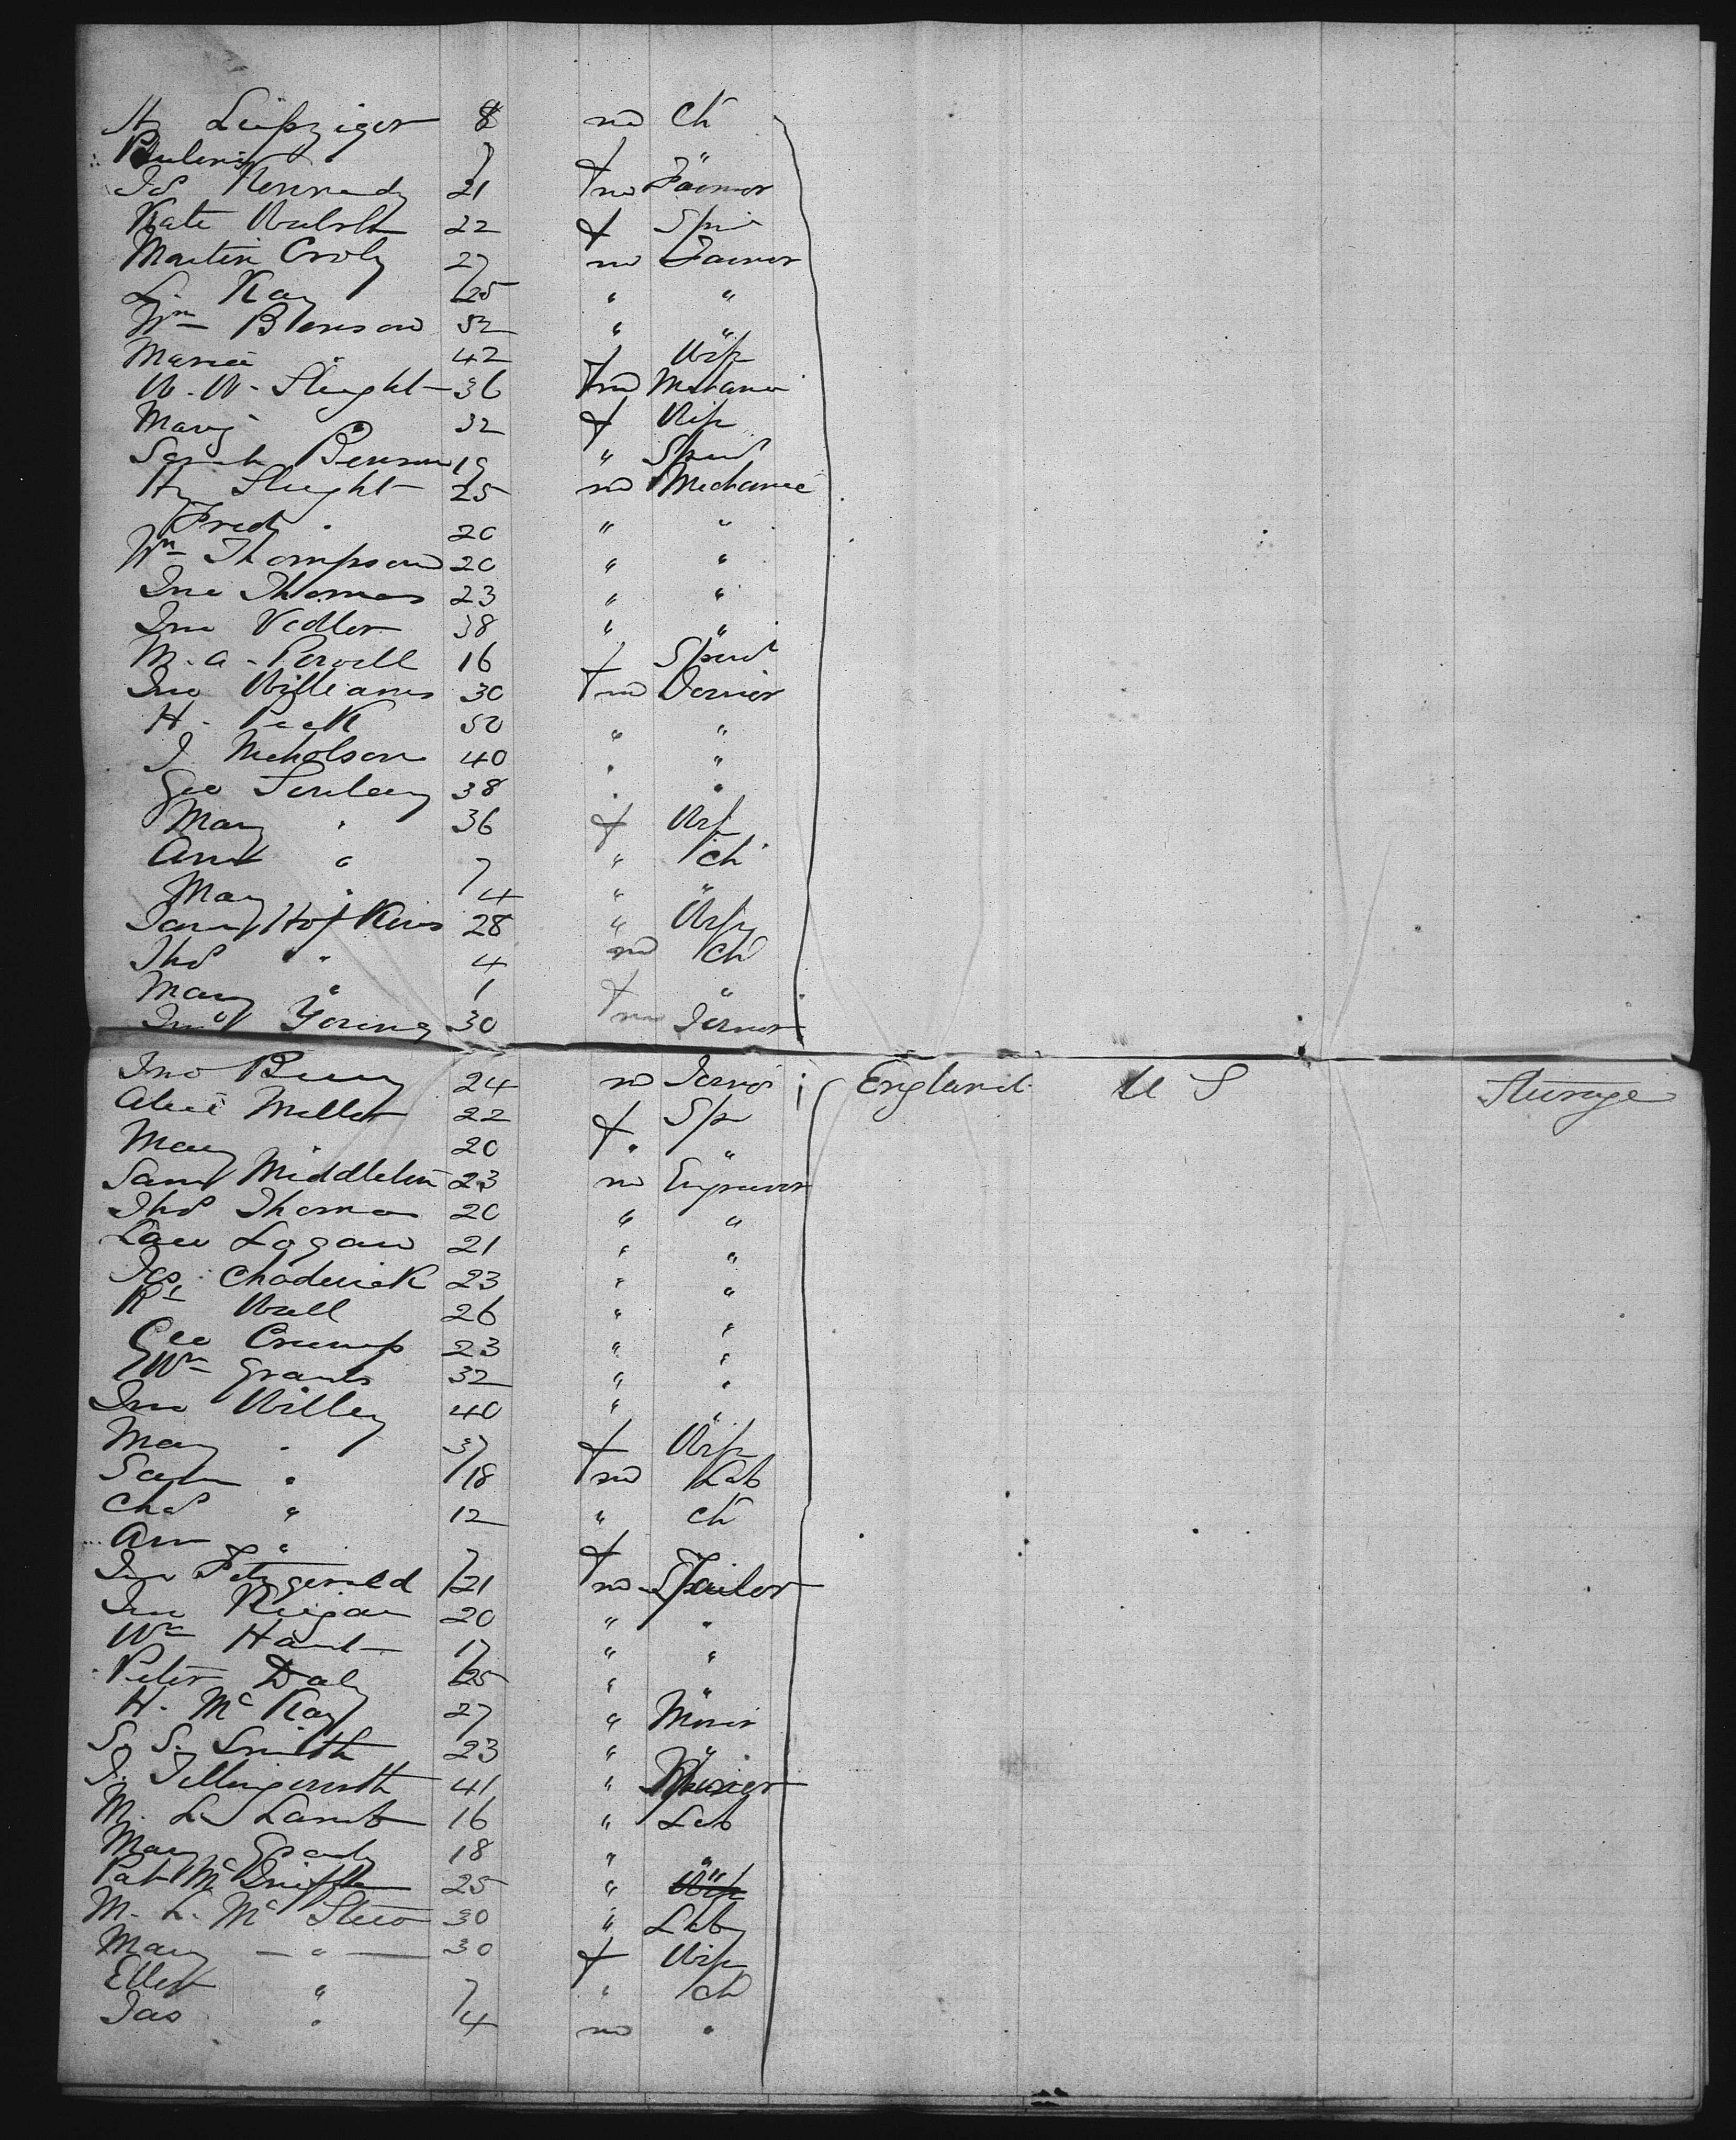 Hy Leipziger 8 m Ch
Pauline " 7 f "
Jas Kennedy 21 m Farmer
Kate Walsh 22 f Spin
Martin Croly 27 m Farmer
L. Kay 25 " "
Wm Benson 52 " "
Maria " 42 f Wife
W. W. Slught 36 m Mechanic
Mary " 32 f Wife
Sarah Benson 19 " Spin
Hy Slught 25 m Mechanic
Fredk " 20 " "
Wm Thompson 20 " "
Jno Thomas 23 " "
Jno Vedler 38 " "
M. A. Powell 16 f Spin
Jno Williams 30 m Farmer
H. Peek 50 " "
J. Nicholson 40 " "
Geo 38 " "
Mary " 36 f Wife
Ann " 7 " Ch
Mary " 4 " "
Hopkins 28 " Wife
Thos " 4 m Ch
Mary " 1 f "
Jno Young 30 m Farmer
Jno 24 m Farmer England U S Steerage
Alice Miller 22 f Sp
Mary " 20 f "
Saml Middleton 23 m Engraver
Thos Thomas 20 " "
Law Logan 21 " "
Jas Chaderick 23 " "
Rt Wall 26 " "
Geo Crump 23 " "
Wm Grant 32 " "
Jno Willey 40 " "
Mary " 37 f Wife
" 18 m Lab
Chas " 12 " Ch
Ann " 7 f
Jno Fitzgerald 21 m Tailor
Jno Reigan 20 " "
Wm 17 " "
Peter Daly 25 " "
H. McKay 27 " Miner
S. S. Smith 23 " "
J. Illingworth 41 "
M. L. Lamb 16 " Lab
Mary Grady 18 " "
Pat 25 " "
M. L. 30 " Lab
Mary " 30 f Wife
Ellen " 7 " Ch
Jas " 4 m "